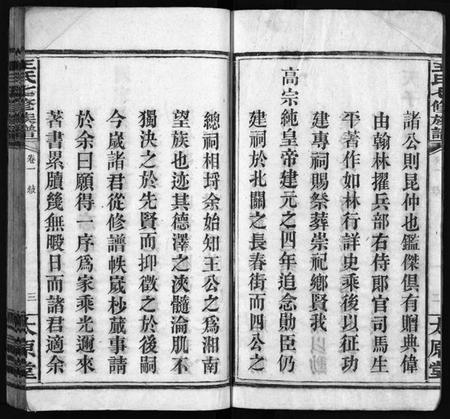 諸公則昆仲也鑑傑俱有贈典偉
由翰林擢兵部右侍郎官司馬生
平著作如林行詳史乘後以征功
建專祠賜祭葬崇祀鄉賢我
高宗純皇帝建元之四年追念勛臣仍
建祠於北關之長春街而四公之
二
太原堂
王氏七修族譜
卷一
三
太原堂
總祠相埒余始知王公之爲湘南
望族也迹其德澤之浹髓淪肌不
獨決之於先賢而抑徵之於後嗣
今歲諸君從修譜帙歲杪蕆事請
於余曰願得一序爲家乘光邇來
著書累牘篋無暇日而諸君適余